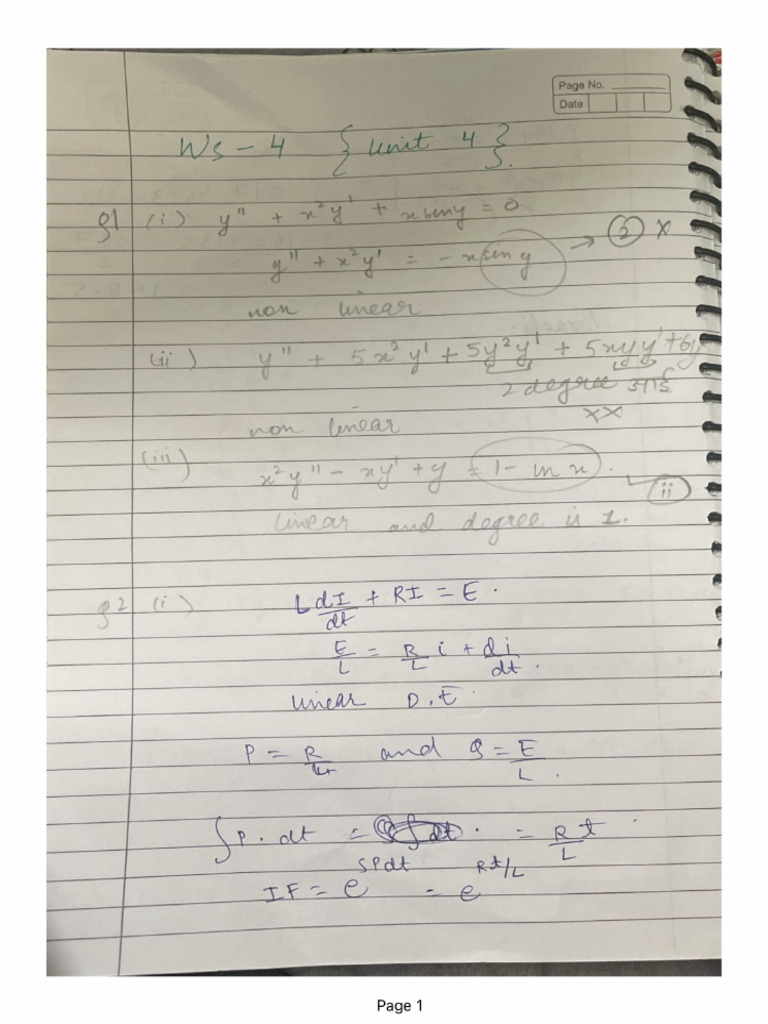 Page No.
Date
WS - 4 { Unit 4 }.
Q1 (i) y" + x²y' + x siny = 0
y" + x²y' = - x siny → ② ×
non linear
(ii) y" + 5x²y' + 5y²y' + 5xyy' + 6y
2 degree आई
××
non linear
(iii) x²y" - xy' + y = 1 - ln x.
(ii)
linear and degree is 1.
Q2 (i) L dI/dt + RI = E.
E/L = R/L i + di/dt.
linear D.E.
P = R/L and Q = E/L.
∫P.dt = = R/L t
IF = e^∫Pdt = e^Rt/L
Page 1